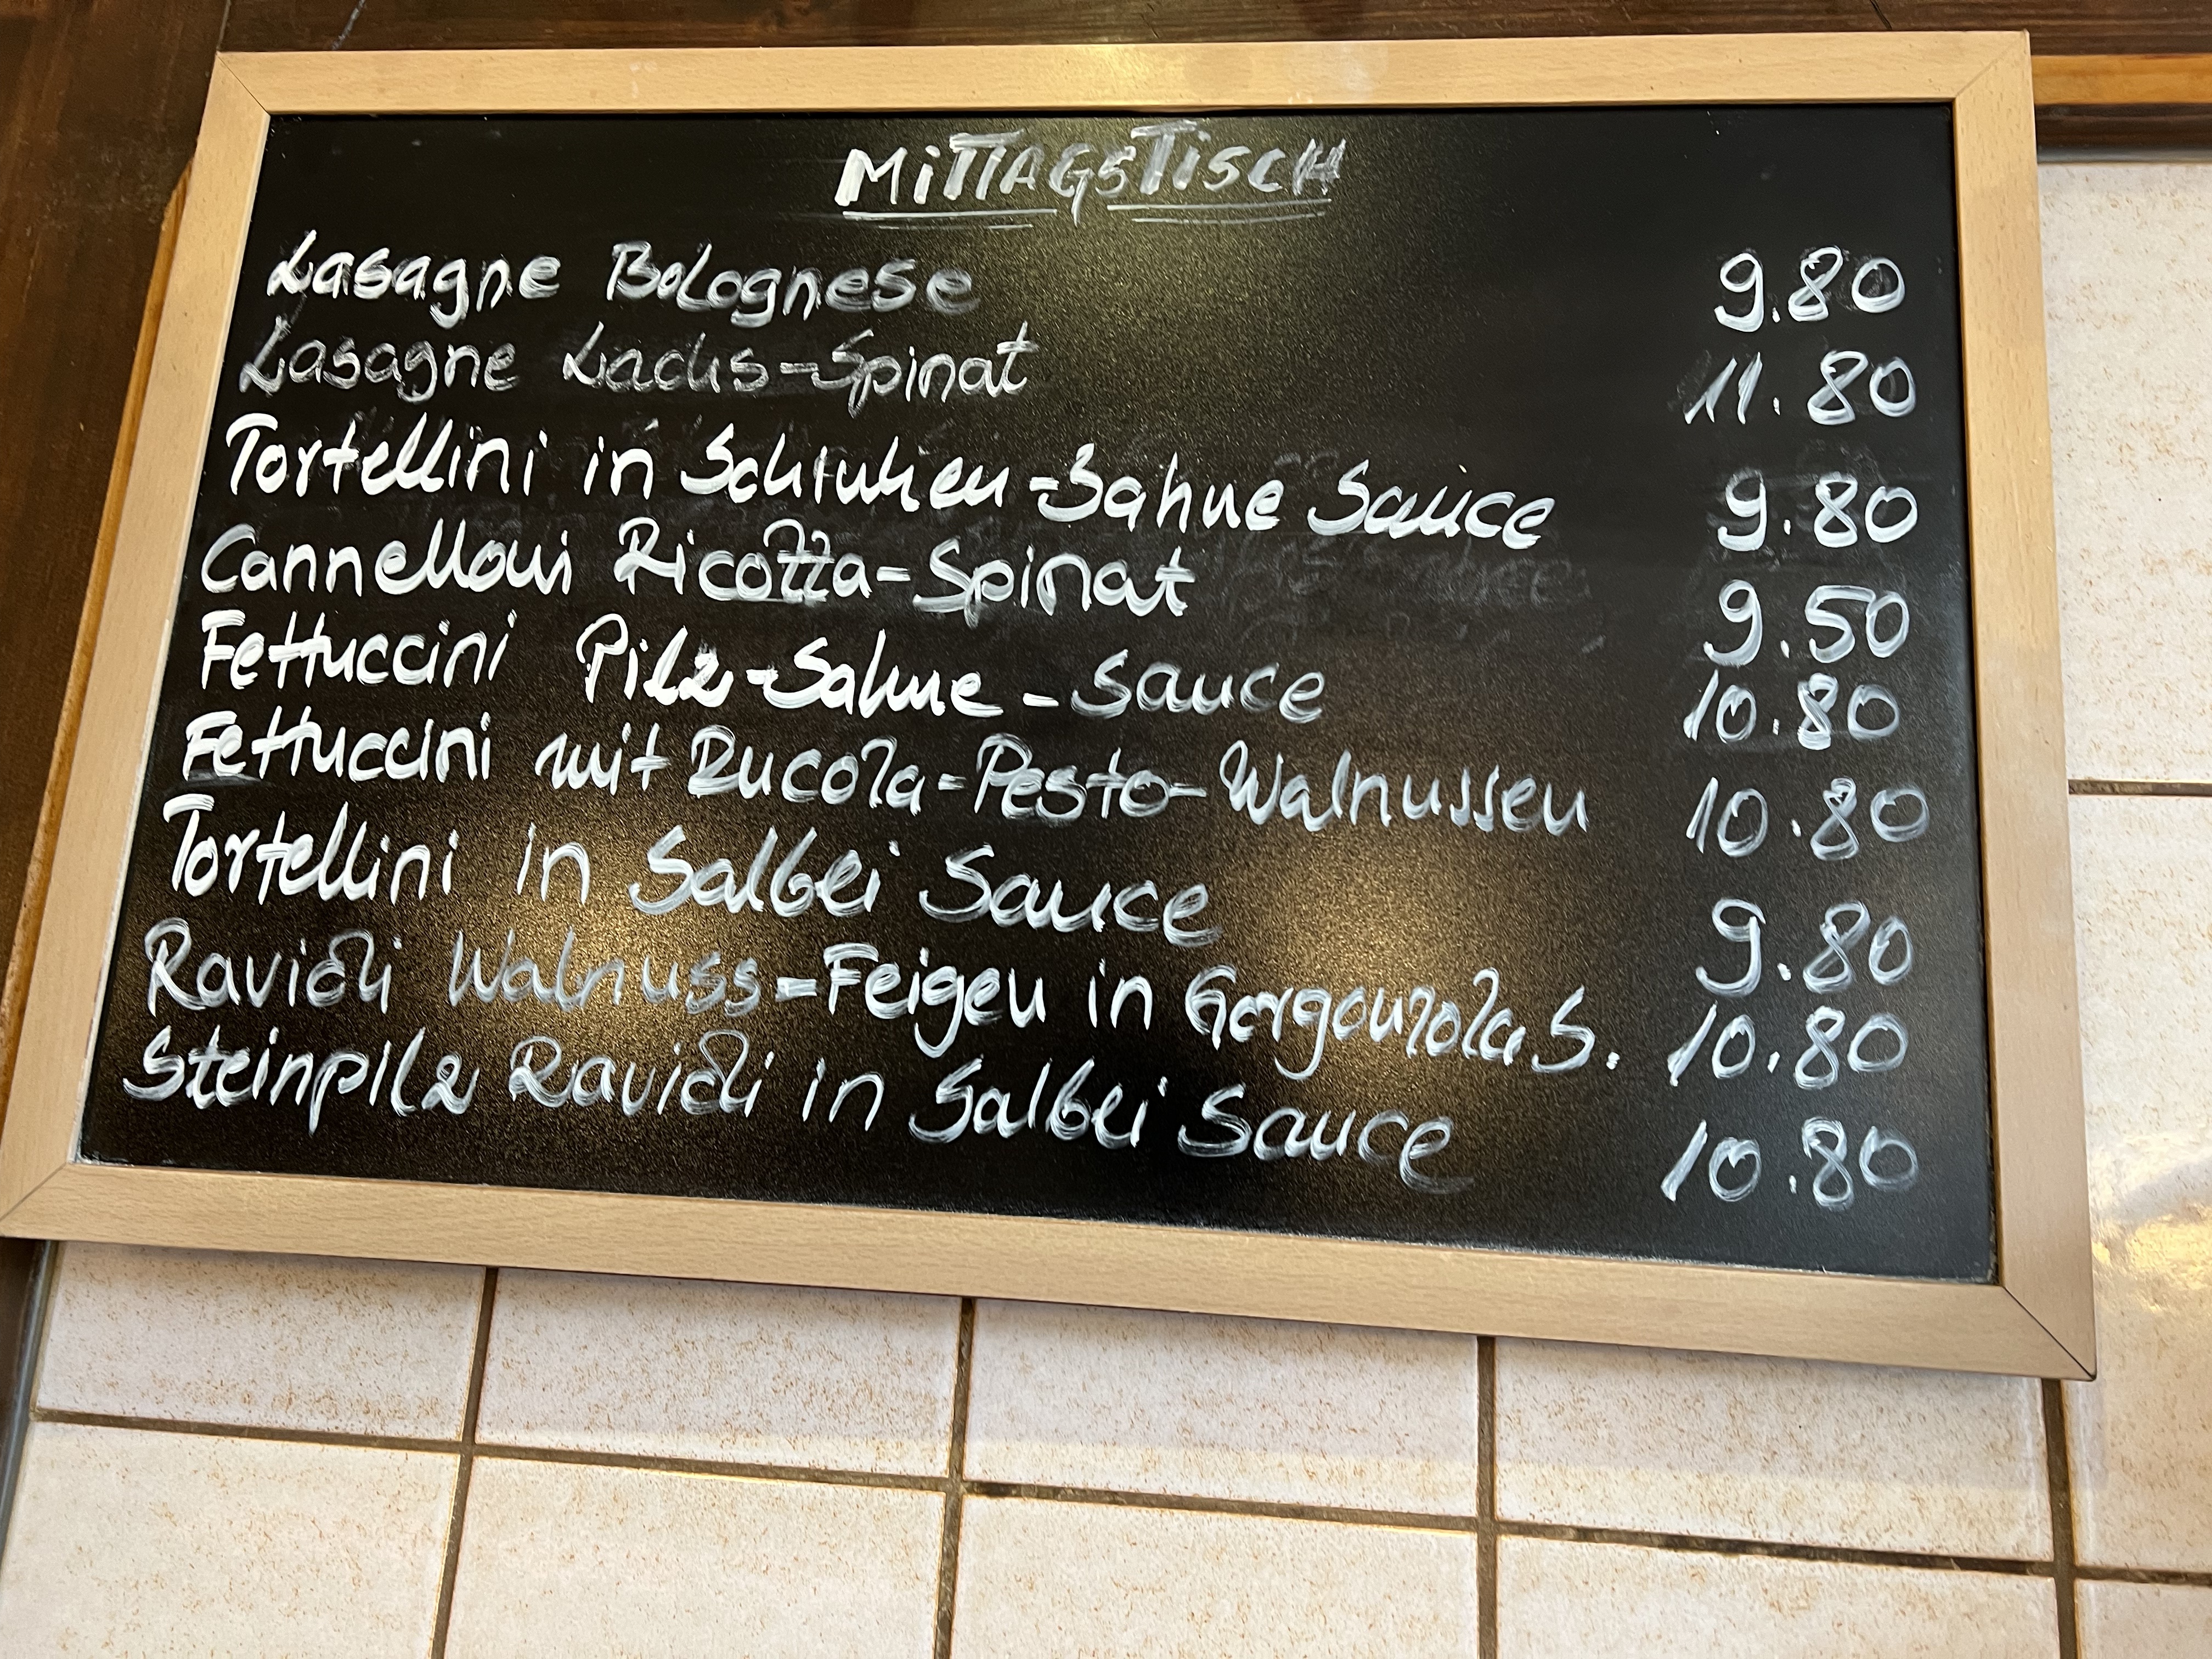 MITTAGSTISCH
Lasagne Bolognese 9.80
Lasagne Lachs-Spinat 11.80
Tortellini in Schinken-Sahne Sauce 9.80
Cannelloni Ricotta-Spinat 9.50
Fettuccini Pilz-Sahne-Sauce 10.80
Fettuccini mit Rucola-Pesto-Walnussen 10.80
Tortellini in Salbei Sauce 9.80
Ravioli Walnuss-Feigen in Gorgonzola S. 10.80
Steinpilz Ravioli in Salbei Sauce 10.80